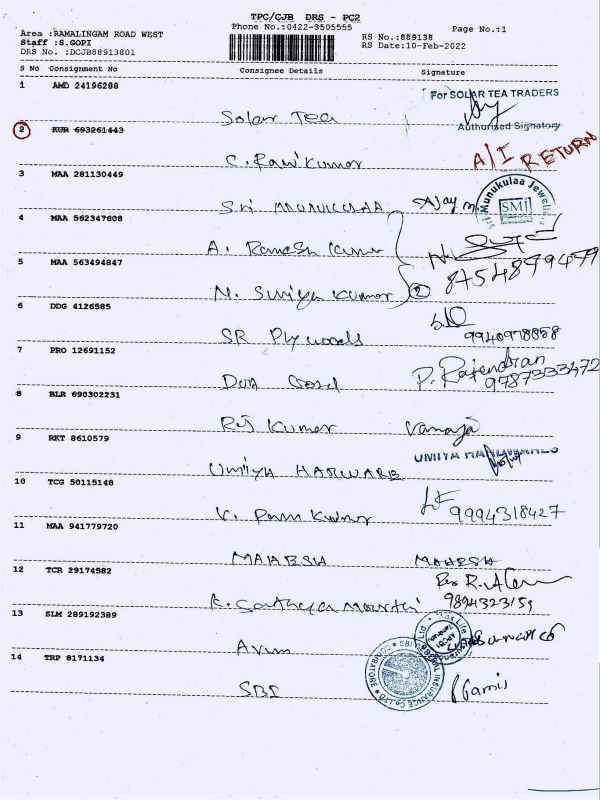 TPC/CJB DRS - PC2
Phone No.:0422-3505555
Page No.:1
Area :RAMALINGAM ROAD WEST
Staff :S.GOPI
DRS No. :DCJB88913801
RS No.:889138
RS Date:10-Feb-2022
S No Consignment No Consignee Details Signature
1 AMD 24196288
Solar Tea
For SOLAR TEA TRADERS
Authorised Signatory
2 KUR 693261443
C. Ravi Kumar
A/I RETURN
3 MAA 281130449
Sri MUNUKULAA
Ajay m
Sri Munukulaa Jewellers
SMJ
4 MAA 562347608
A. Ramesh Kumar
8754879479
5 MAA 563494847
N. Suriya Kumar 2
6 DDG 4126585
SR Plywoods
9940978858
7 PRO 12691152
P. Rajendran
9787333472
8 BLR 690302231
Raj Kumar
Vanaja
9 RKT 8610579
UMIYA HARWARE
UMIYA HARDWARES
10 TCG 50115148
V. Ram Kumar
9994318427
11 MAA 941779720
MAHESH
MAHESH
12 TCR 29174582
9894323159
13 SLM 289192389
14 TRP 8171134
SBI
COIMBATORE